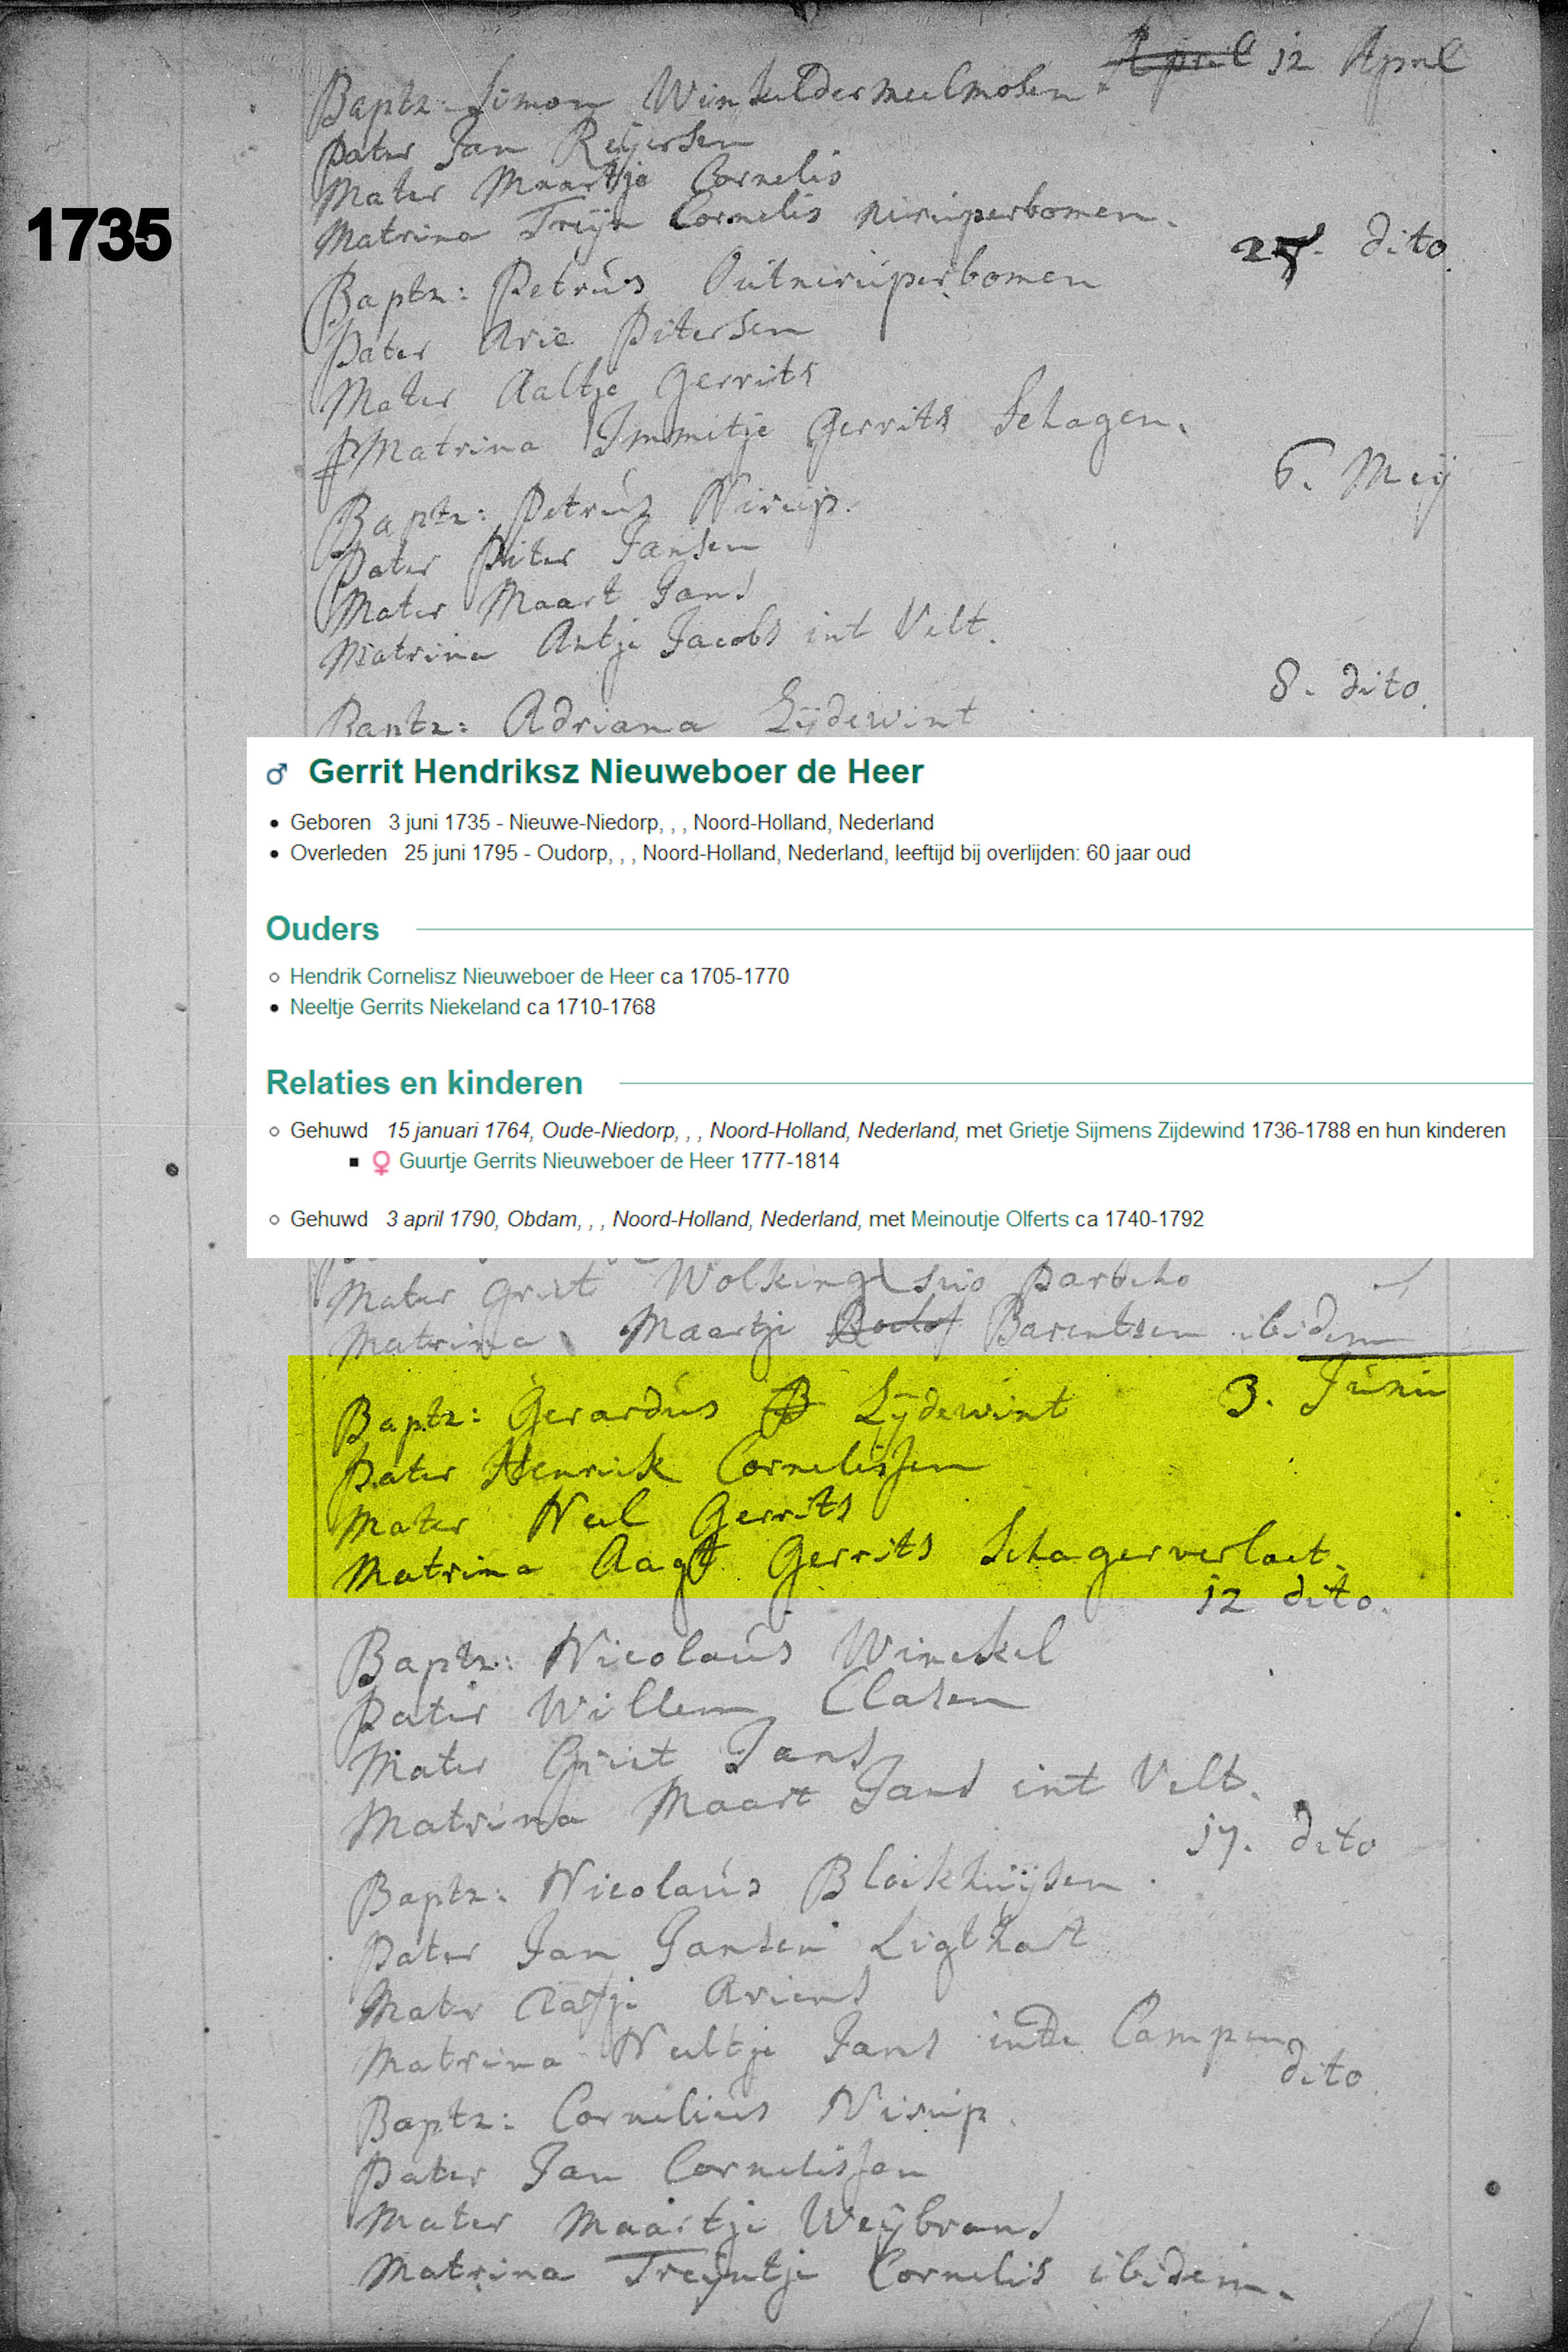 April 12 April
Baptz: Simon Winkeldermeelmolen.
Pater Jan Reijersen
Mater Maartje Cornelis
1735
Matrina Trijn Cornelis nirüperbomen.
25. dito
Baptz: Petrus Outnirüperbomen
Pater Arie Pitersen
Mater Aaltje Gerrits
Matrina Immitje Gerrits Schagen.
6. Meij
Baptz: Petrus Nirüp.
Pater Piter Jansen
Mater Maart Jans
Matrina Antje Jacobs int Velt.
8. dito
Baptz: Adriana Zijdewint
♂ Gerrit Hendriksz Nieuweboer de Heer
• Geboren 3 juni 1735 - Nieuwe-Niedorp, , , Noord-Holland, Nederland
• Overleden 25 juni 1795 - Oudorp, , , Noord-Holland, Nederland, leeftijd bij overlijden: 60 jaar oud
Ouders
Hendrik Cornelisz Nieuweboer de Heer ca 1705-1770
• Neeltje Gerrits Niekeland ca 1710-1768
Relaties en kinderen
Gehuwd 15 januari 1764, Oude-Niedorp, , , Noord-Holland, Nederland, met Grietje Sijmens Zijdewind 1736-1788 en hun kinderen
♀ Guurtje Gerrits Nieuweboer de Heer 1777-1814
Gehuwd 3 april 1790, Obdam, , , Noord-Holland, Nederland, met Meinoutje Olferts ca 1740-1792
Mater Griet
Matrina Maartje Barentsen ibidem
3. Junii
Baptz: Gerardus Zijdewint
Pater Henrick Cornelissen
Mater Neel Gerrits
Matrina Aagt Gerrits Schagerverlaet.
12 dito.
Baptz: Nicolaus Winckel
Pater Willem Clasen
Mater Griet Jans
Matrina Maart Jans int Velt.
17. dito
Baptz: Nicolaus Blockhuijsen
Pater Jan Jansen Ligthart
Mater Ariens
Matrina Neeltje Jans inde Campen
dito
Baptz: Cornelius Nirüp.
Pater Jan Cornelissen
Mater Maartje Weijbrand
Matrina Treijntje Cornelis ibidem.